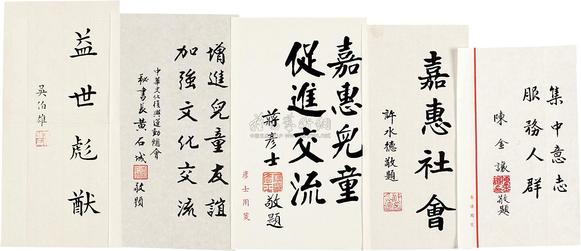 集中意志
服務人群
陳金讓敬題
嘉惠社會
許水德敬題
嘉惠兒童
促進交流
蔣彥士敬題
彥士用箋
增進兒童友誼
加強文化交流
中華文化復興運動總會
秘書長黃石城敬題
益世彪猷
吳伯雄